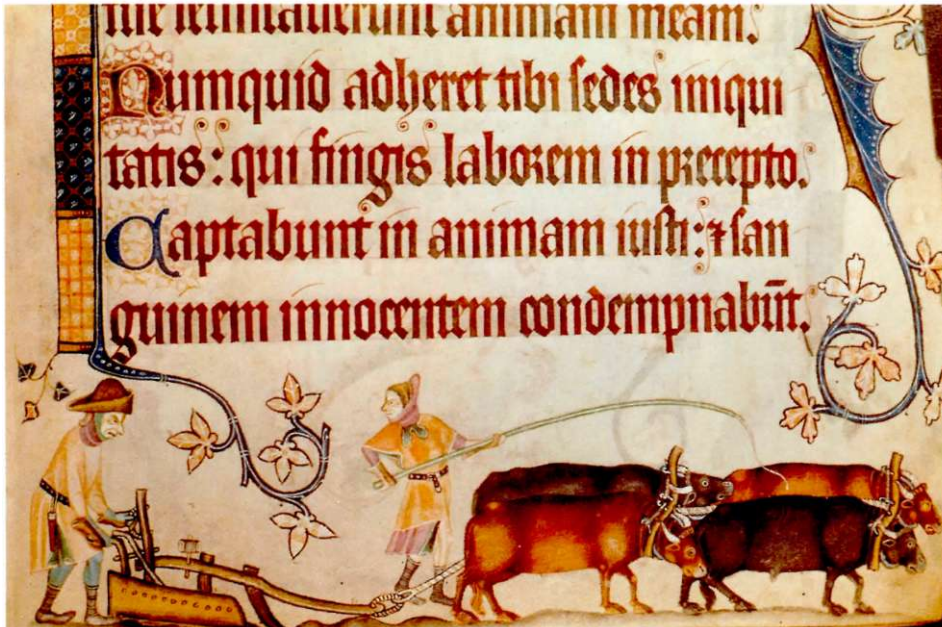 me temtauerunt animam meam.
Numquid adheret tibi sedes iniqui
tatis: qui fingis laborem in precepto.
Captabunt in animam iusti: ⁊ san
guinem innocentem condempnabūt.